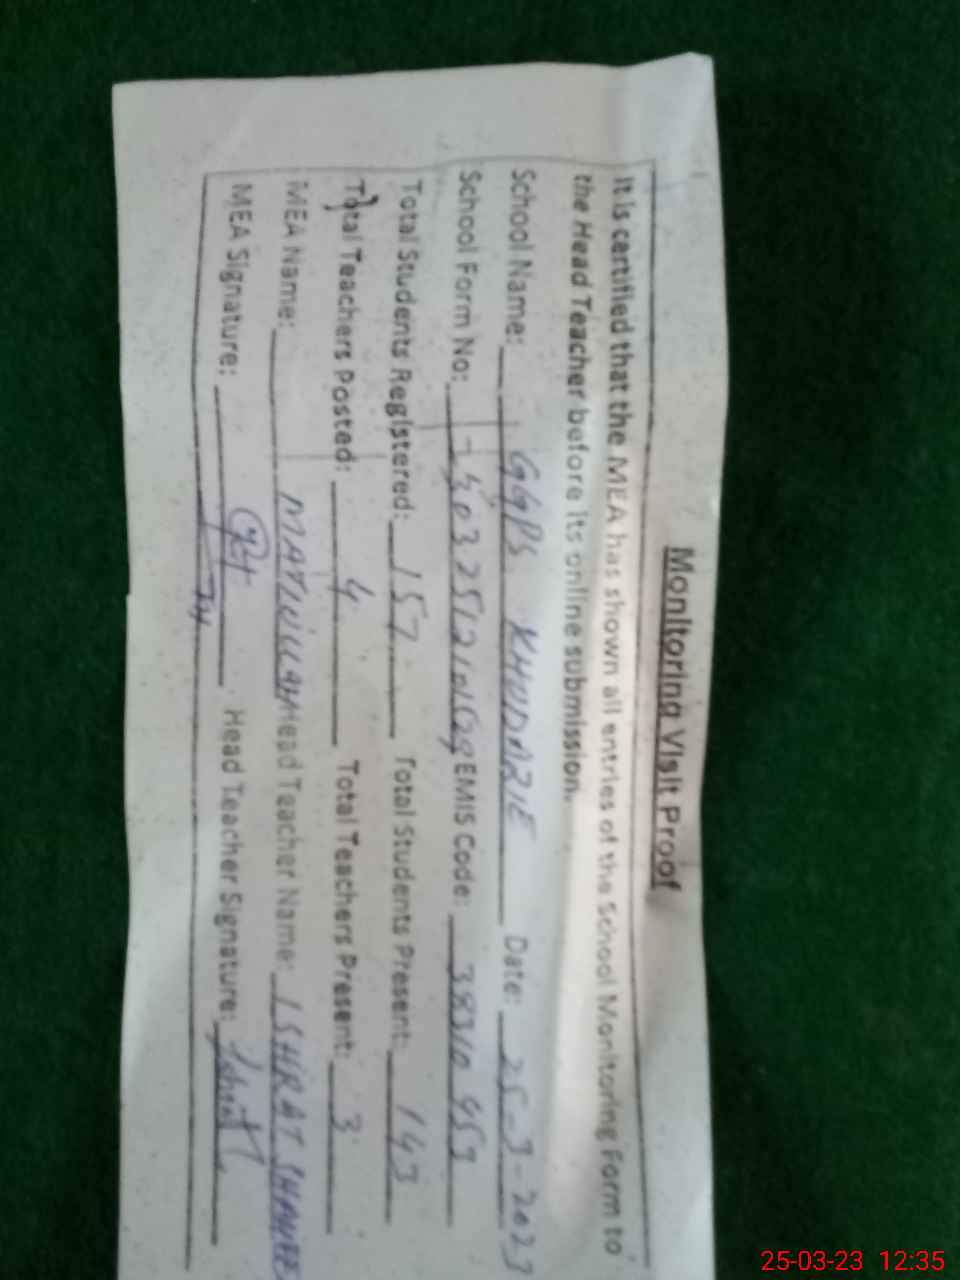 Monitoring Visit Proof
It is certified that the MEA has shown all entries of the School Monitoring Form to
the Head Teacher before its online submission.
School Name: GGPS KHUDARIE Date: 25-3-2023
School Form No: EMIS Code: 38310453
Total Students Registered: 157 Total Students Present: 143
Total Teachers Posted: 4 Total Teachers Present: 3
MEA Name: MATIULLAH Head Teacher Name: ISHRAT
MEA Signature: Head Teacher Signature: Ishrat
25-03-23 12:35